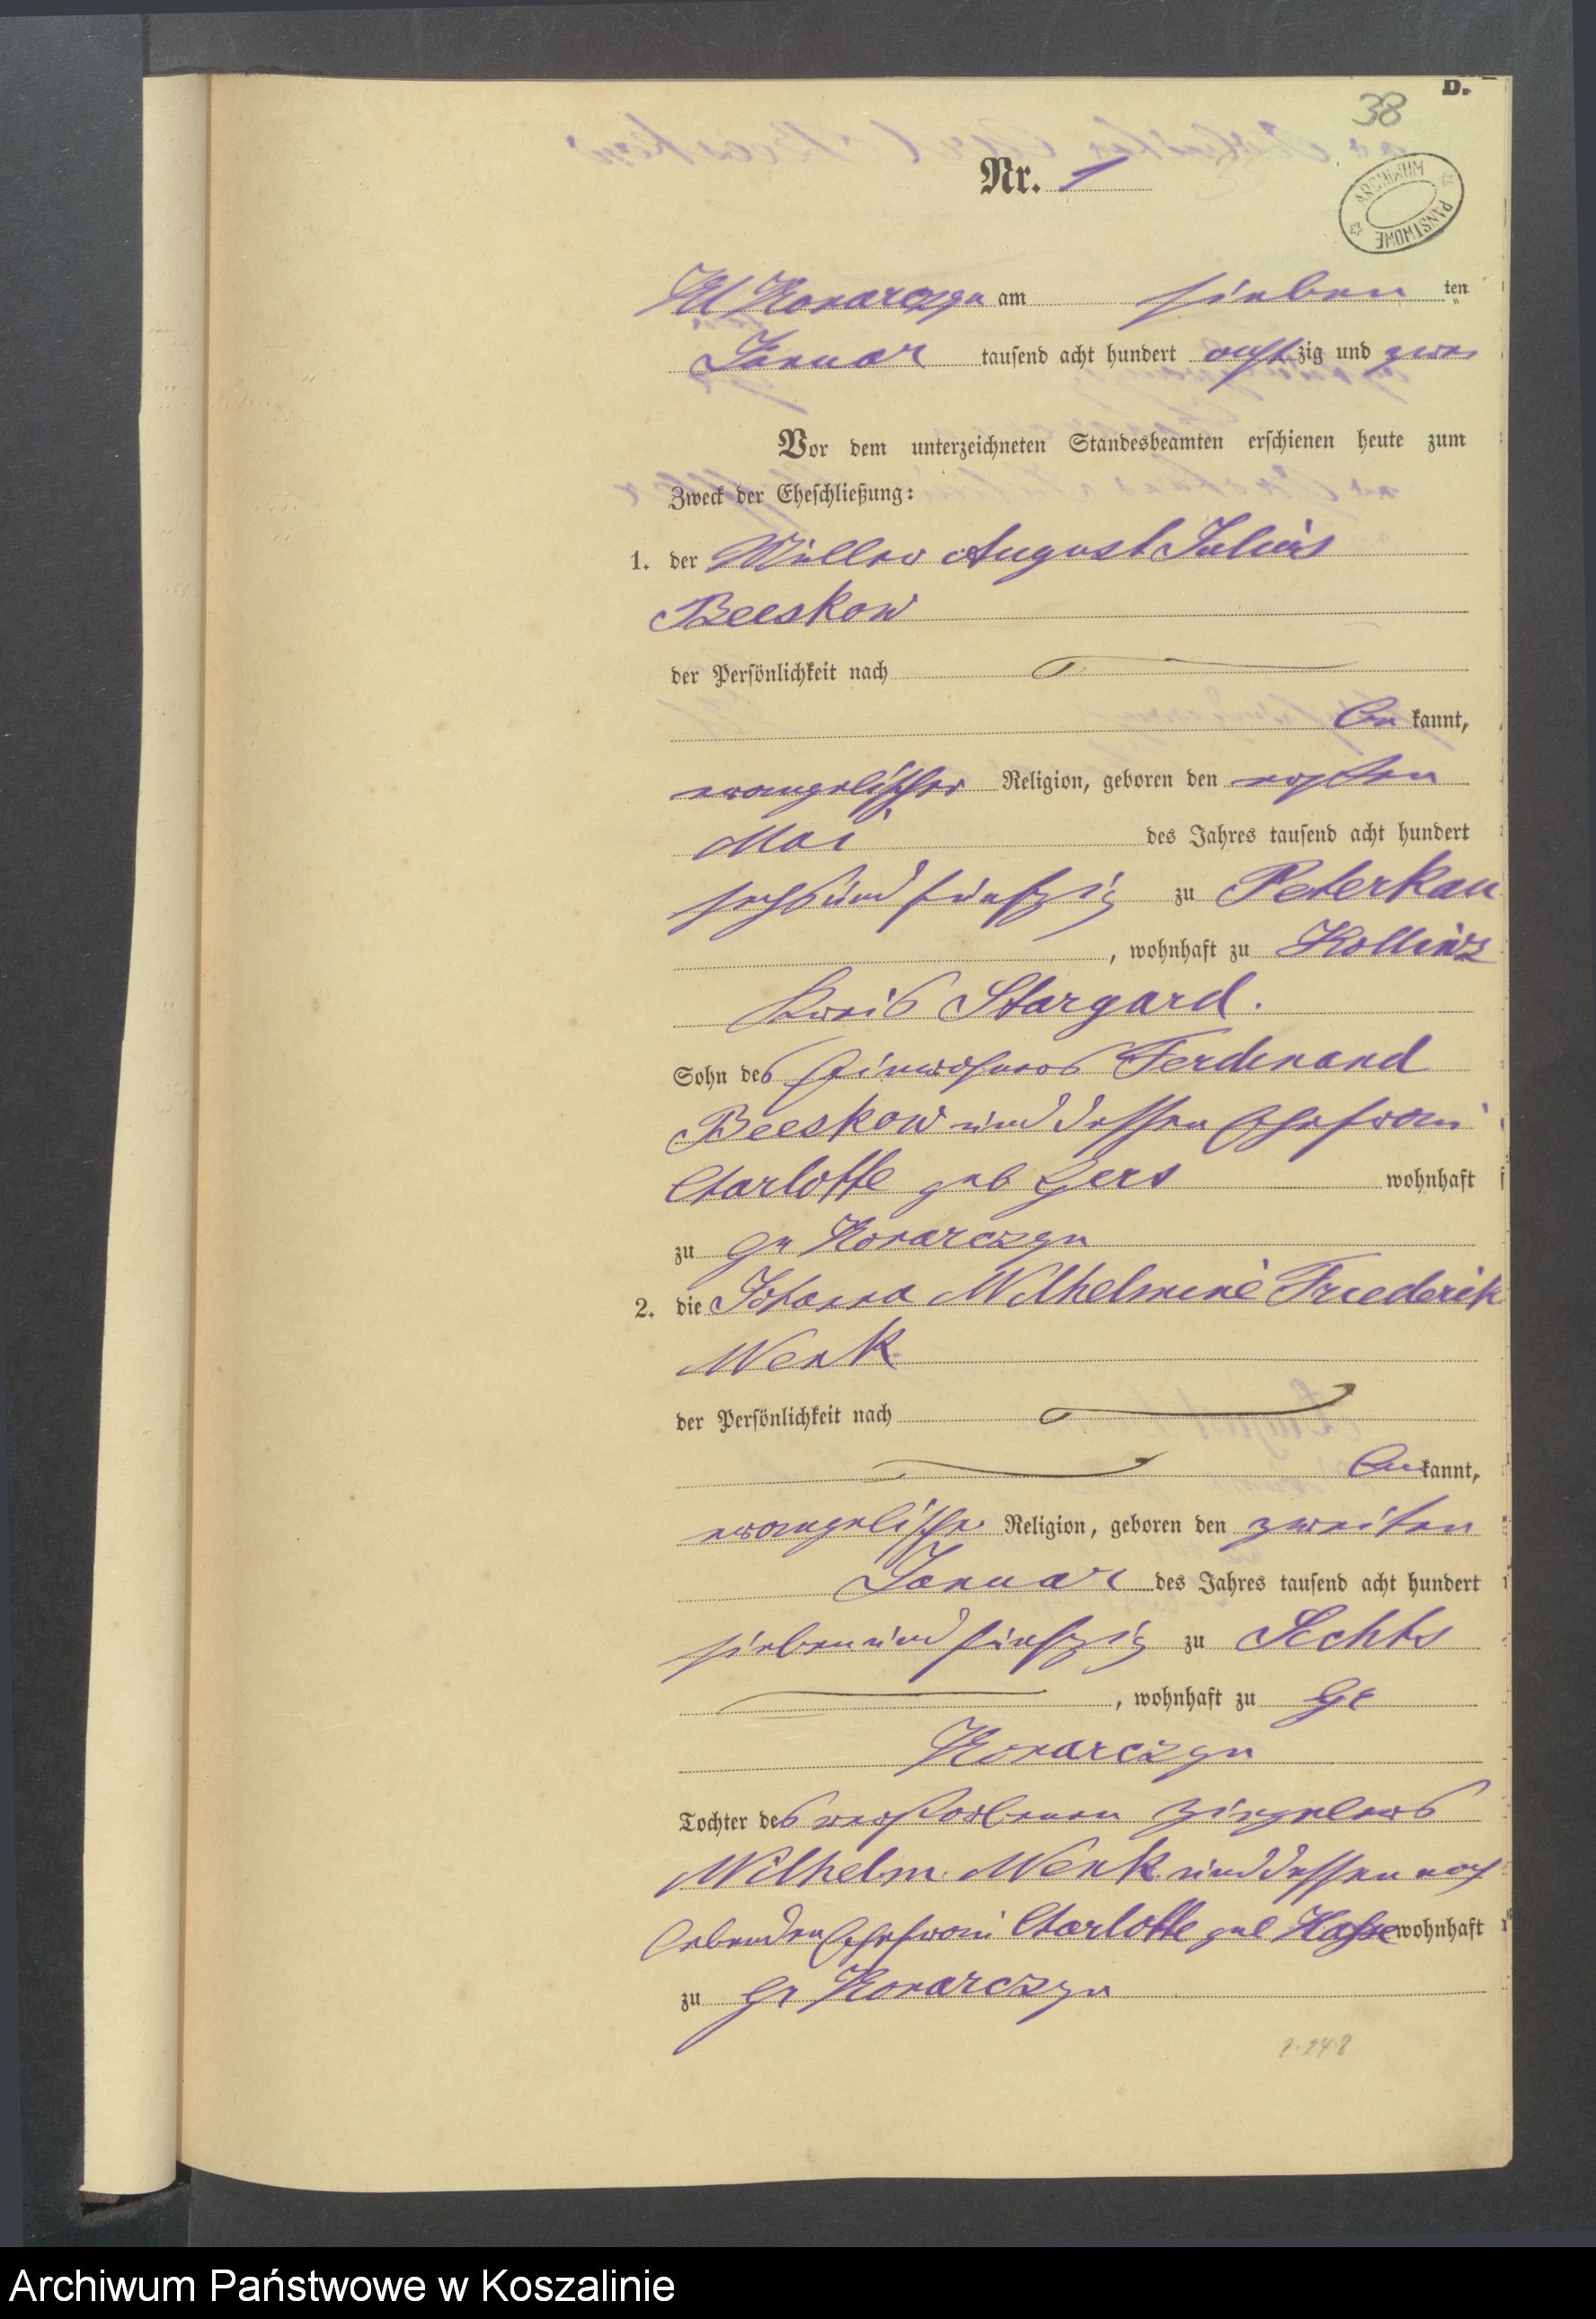 B.
38
Nr. 1
ARCHIWUM PAŃSTWOWE
Kl Konarczyn am sieben ten
Januar tausend acht hundert achtzig und zwei
Vor dem unterzeichneten Standesbeamten erschienen heute zum
Zweck der Eheschließung:
1. der Müller August Julius
Beeskow
der Persönlichkeit nach
be kannt,
evangelischer Religion, geboren den ersten
Mai des Jahres tausend acht hundert
sechsundfünfzig zu Peterkau
, wohnhaft zu Kollinz
Kreis Stargard.
Sohn des Einwohners Ferdinand
Beeskow und dessen Ehefrau
Charlotte geb Gers wohnhaft
zu Gr Konarczyn
2. die Johanna Wilhelmine Friederik
Wenk
der Persönlichkeit nach
be kannt,
evangelischer Religion, geboren den zweiten
Januar des Jahres tausend acht hundert
siebenundfünfzig zu
, wohnhaft zu Gr
Konarczyn
Tochter des verstorbenen Zieglers
Wilhelm Wenk und dessen noch
lebenden Ehefrau Charlotte geb Hasse wohnhaft
zu Gr Konarczyn
Archiwum Państwowe w Koszalinie